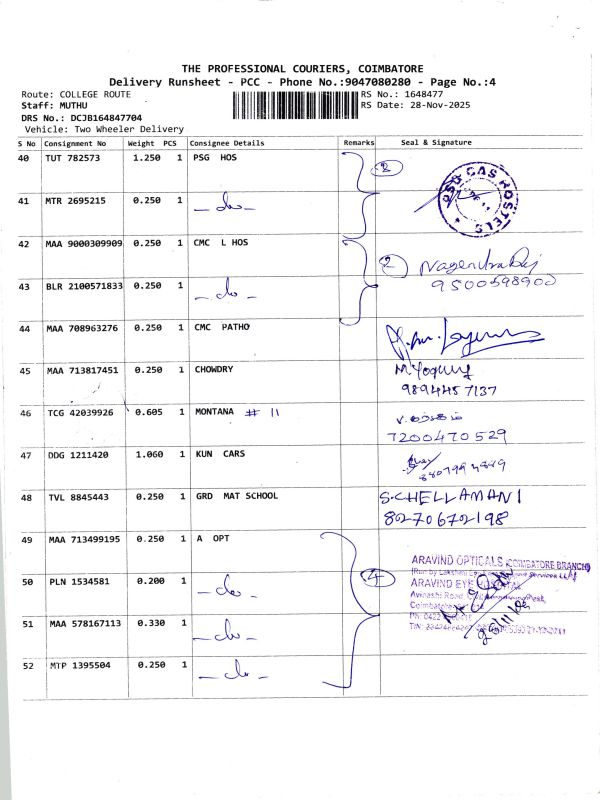 THE PROFESSIONAL COURIERS, COIMBATORE
Delivery Runsheet - PCC - Phone No.:9047080280 - Page No.:4
Route: COLLEGE ROUTE RS No.: 1648477
Staff: MUTHU RS Date: 28-Nov-2025
DRS No.: DCJB164847704
Vehicle: Two Wheeler Delivery
S No Consignment No Weight PCS Consignee Details Remarks Seal & Signature
40 TUT 782573 1.250 1 PSG HOS 2 PSG CAS HOSTELS
41 MTR 2695215 0.250 1 - do -
42 MAA 9000309909 0.250 1 CMC L HOS 2
43 BLR 2100571833 0.250 1 - do - 9500598900
44 MAA 708963276 0.250 1 CMC PATHO
45 MAA 713817451 0.250 1 CHOWDRY
9894457137
46 TCG 42039926 0.605 1 MONTANA # 11
7200470529
47 DDG 1211420 1.060 1 KUN CARS
48 TVL 8845443 0.250 1 GRD MAT SCHOOL S.CHELLAMANI
82706702198
49 MAA 713499195 0.250 1 A OPT 4 ARAVIND OPTICALS (COIMBATORE BRANCH)
50 PLN 1534581 0.200 1 - do - ARAVIND EYE HOSPITAL
Avinashi Road
51 MAA 578167113 0.330 1 - do -
52 MTP 1395504 0.250 1 - do -